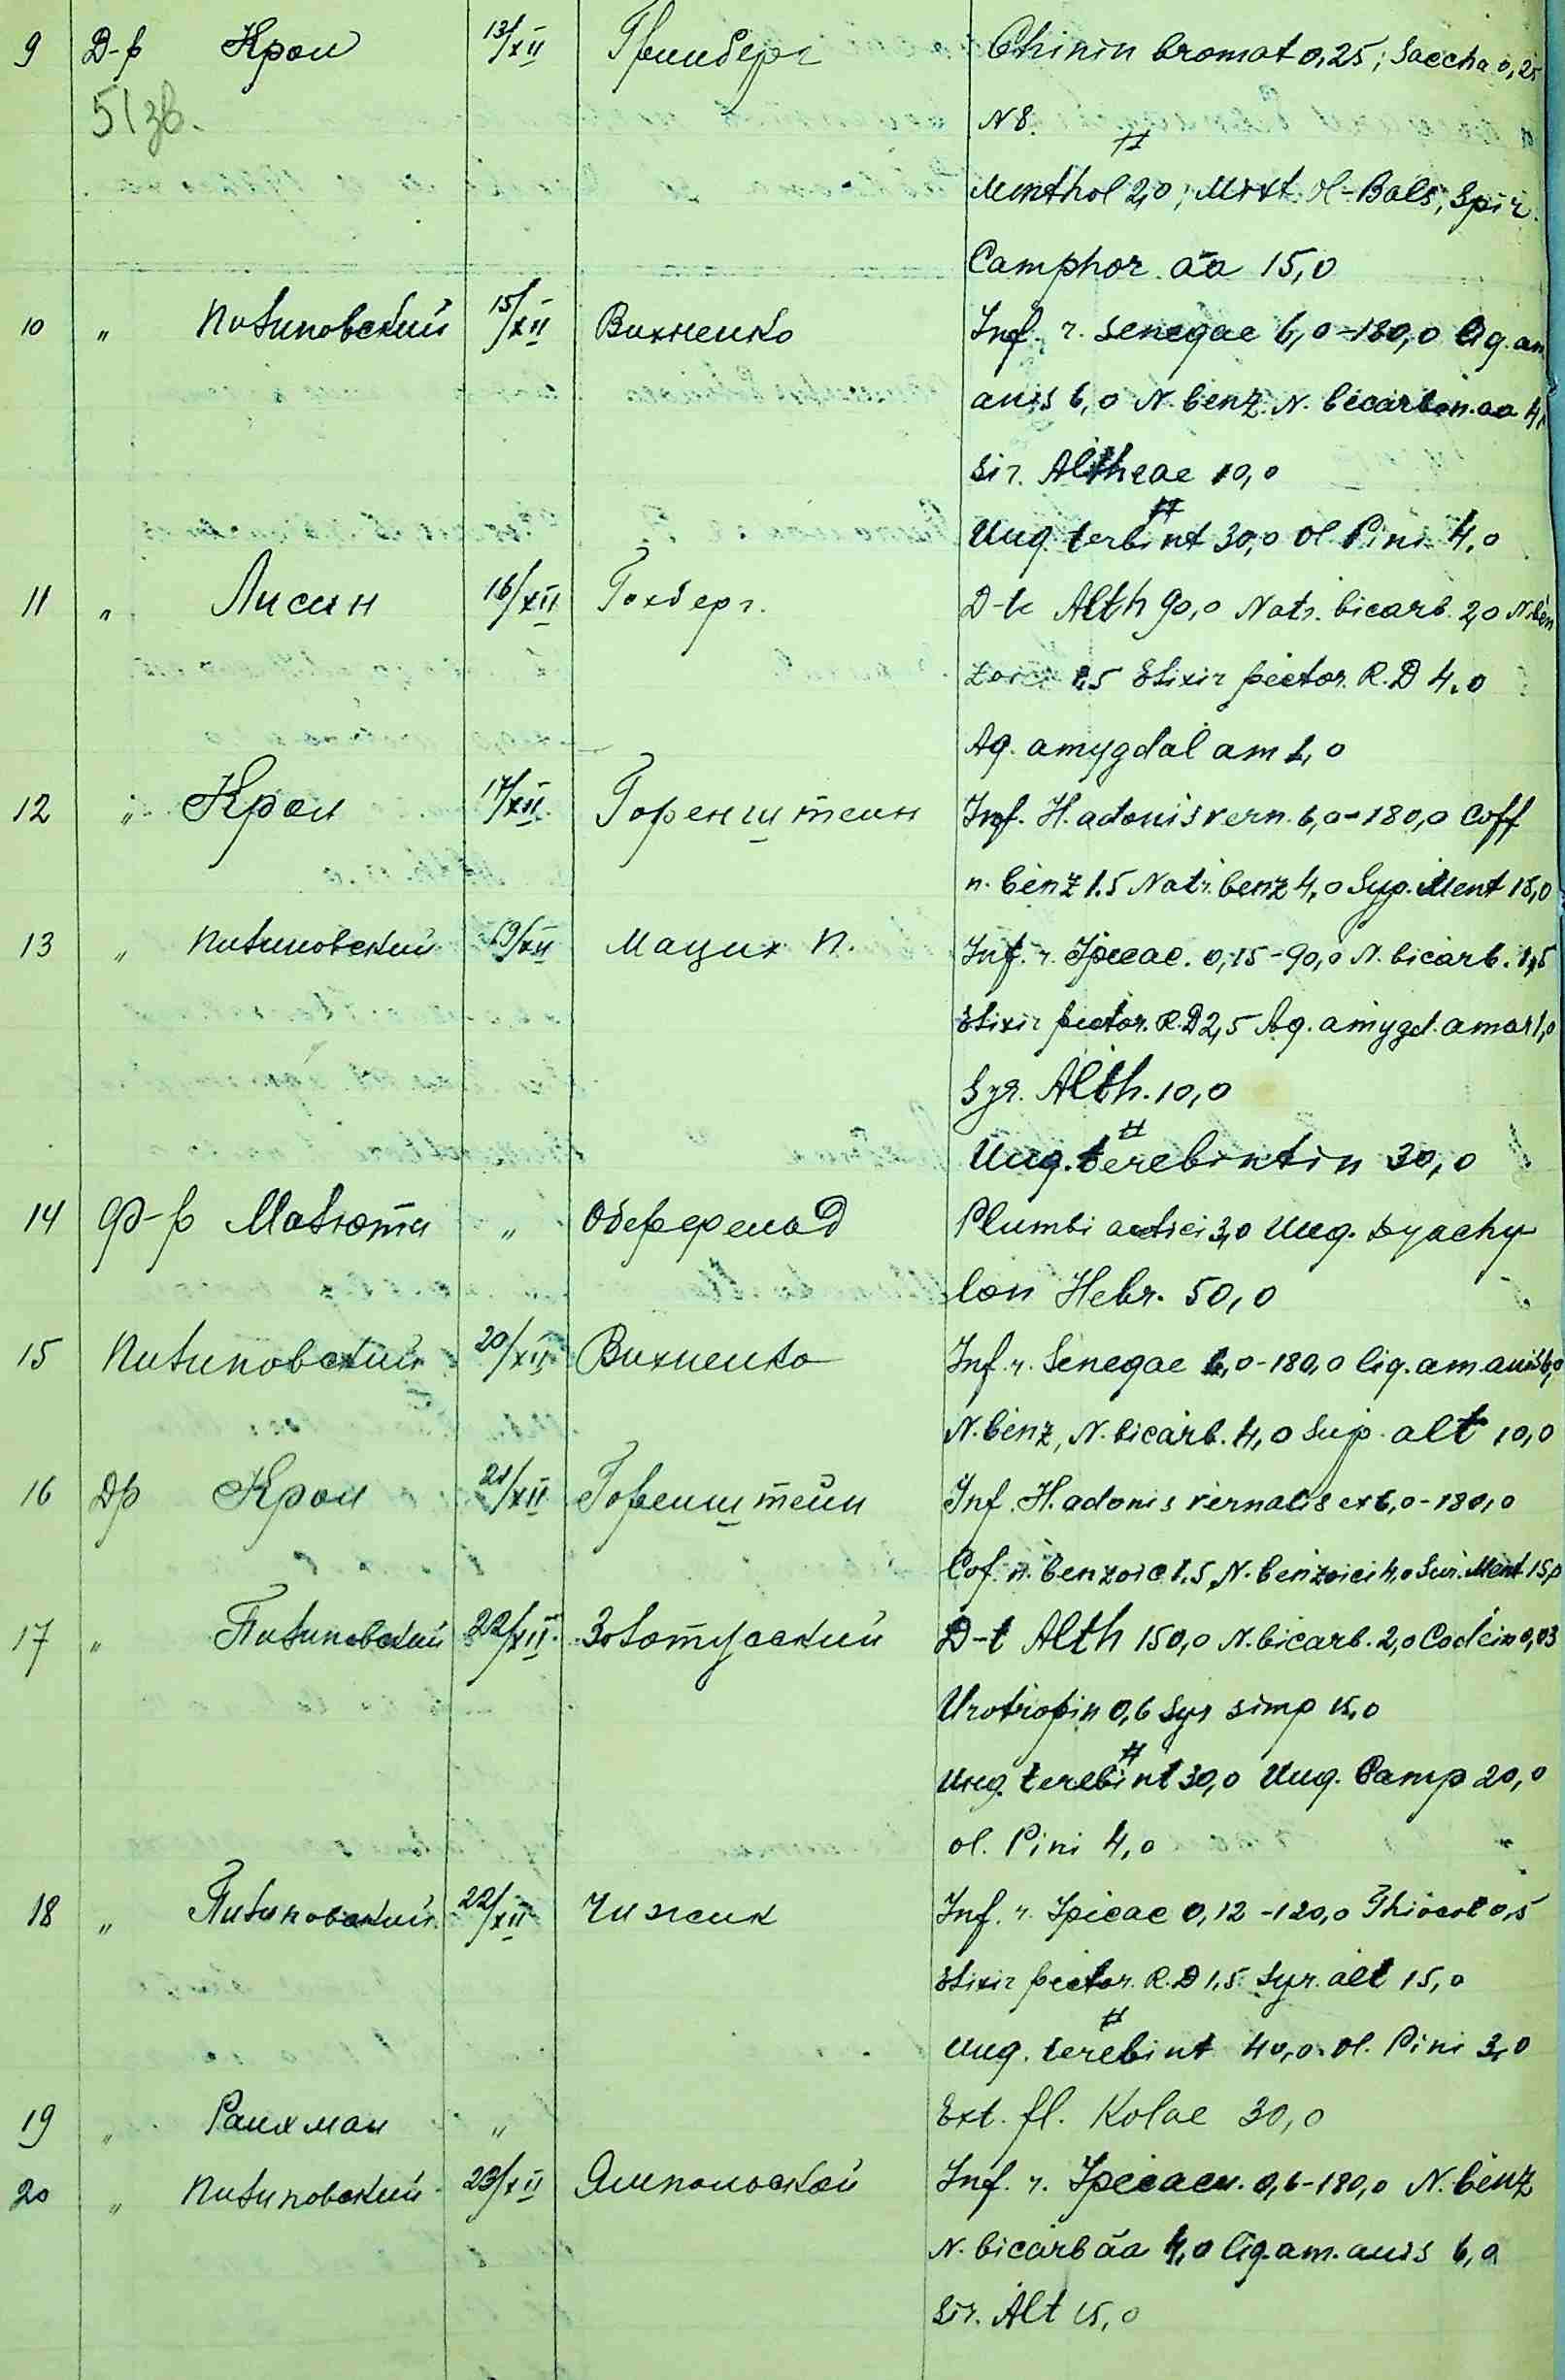 9 Д-р Крол 13/XII Гринберг Chinin bromat 0,25; Saccha 0,25
51зв. N 8.
#
Menthol 2,0; Mixt. Ol-Bals; Spir.
Camphor. āā 15,0
10 „ Пилиповский 15/XII Вихненко Inf. r. Senegae 6,0-180,0 Liq. am
anis 6,0 N. benz. N. bicarbon. āā 4,
Sir. Altheae 10,0
#
Ung. terbint 30,0 Ol. Pini 4,0
11 „ Лисин 16/XII Гохберг. D-tt Alth 90,0 Natr. bicarb. 2,0 N. ben
zoici 1,5 Elixir pector. R. D 4,0
Aq. amygdal am 1,0
12 „ Крол 17/XII Горенштеин Inf. H. adonis vern. 6,0-180,0 Coff
n. benz 1.5 Natr. benz 4,0 Syp. Ment 15,0
13 „ Пилиповский 19/XII Мацих П. Inf. r. Ipecac. 0,15-90,0 N. bicarb. 1,5
Elixir pector. R.D 2,5 Aq. amygd. amar 1,0
Syr. Alth. 10,0
#
Ung. terebintin 30,0
14 Ф-р Малюта „ Plumbi acetici 3,0 Ung. Dyachy
lon Hebr. 50,0
15 Пилиповский 20/XII Вихненко Inf. r. Senegae 6,0-180,0 liq. am. anis 6,0
N. benz, N. bicarb. 4,0 Sup. alt 10,0
16 Др Крол 21/XII Горенштейн Inf. H. adonis vernalis ex 6,0-180,0
Cof. n. benzoic 1.5 N. benzoici 4,0 Sir. Ment 15,0
17 „ Пилиповский 22/XII. D-t Alth 150,0 N. bicarb. 2,0 Codein 0,03
Urotropin 0,6 Syr simp 15,0
#
Ung. terebint 30,0 Ung. Camp 20,0
ol. Pini 4,0
18 „ Пилиповский 22/XII Чижик Inf. r. Ipecac 0,12-120,0 Thiocol 0,5
Elixir pector. R. D 1,5 Syr. alt 15,0
#
Ung. terebint 40,0. Ol. Pini 3,0
19 „ Раихман „ Ext. fl. Kolae 30,0
20 „ Пилиповский 23/XII Ямпольской Inf. r. Ipecacu. 0,6-180,0 N. benz
N. bicarb āā 4,0 liq. am. anis 6,0
Sir. Alt 15,0